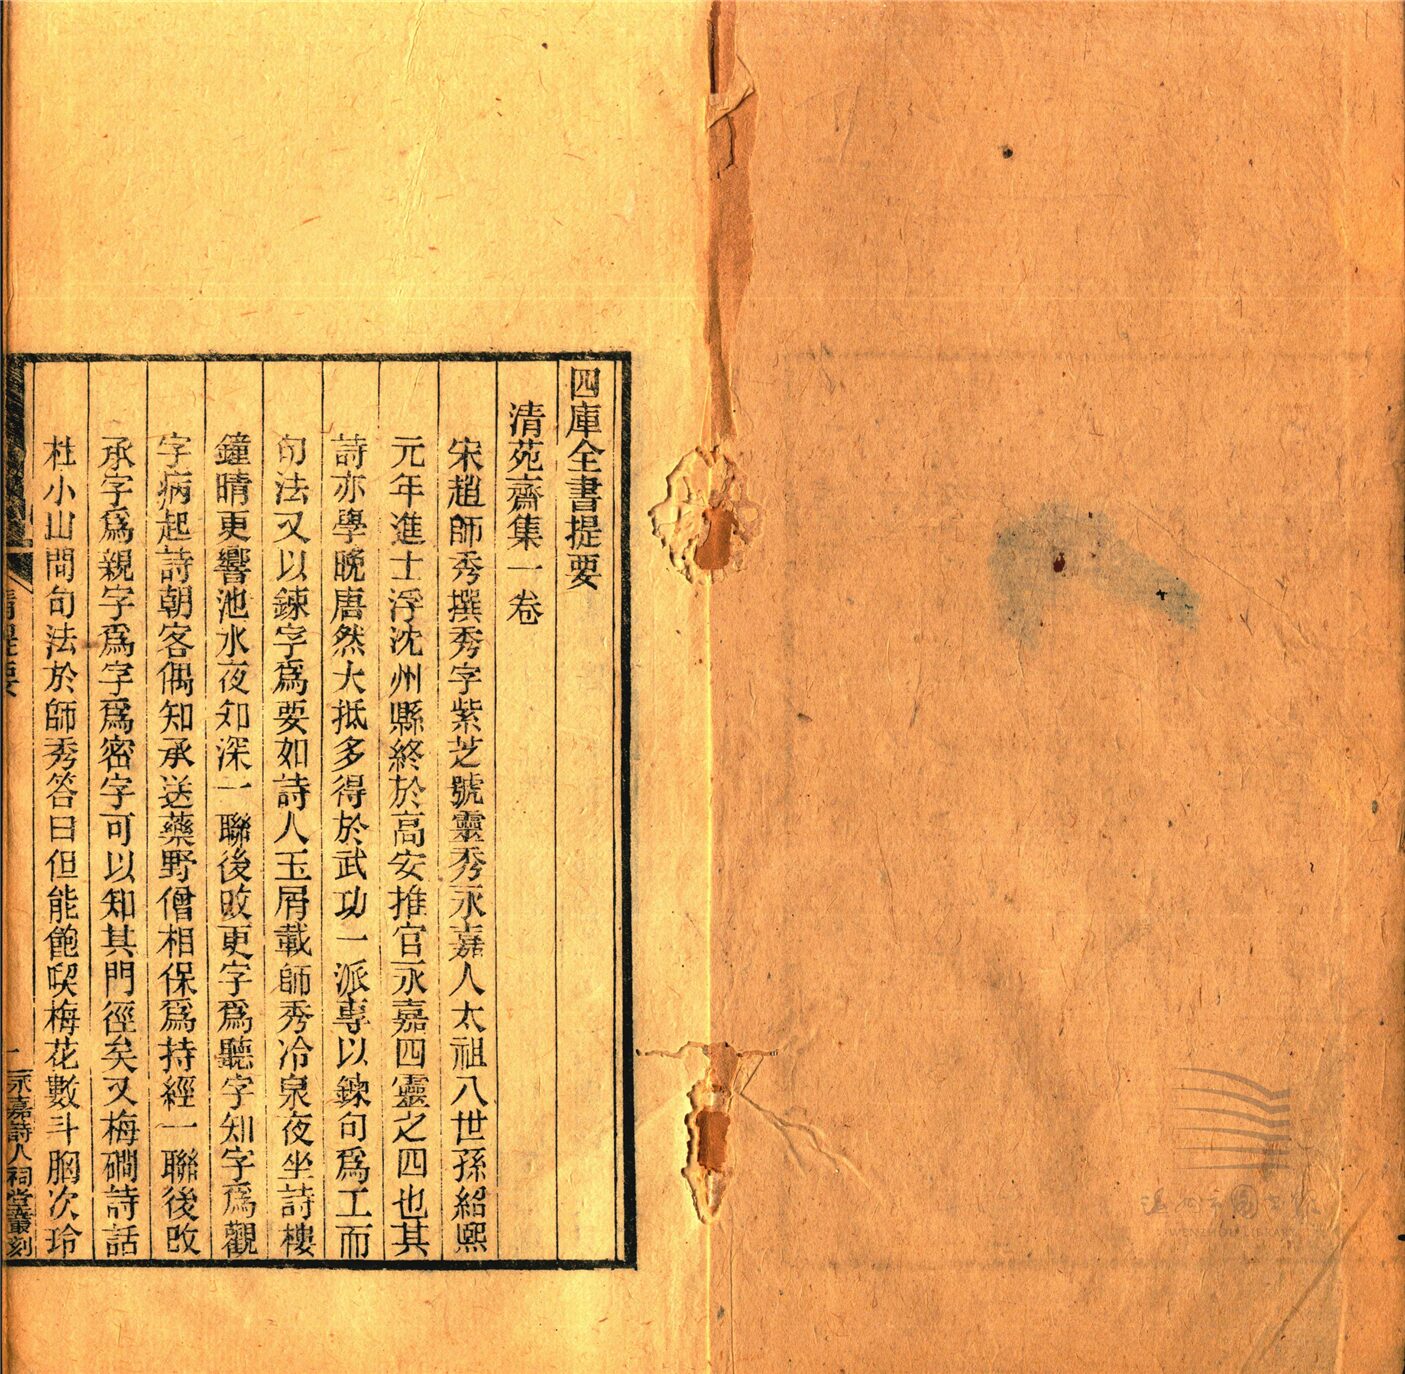 四庫全書提要
清苑齋集一卷
宋趙師秀撰秀字紫芝號靈秀永嘉人太祖八世孫紹熙
元年進士浮沈州縣終於高安推官永嘉四靈之四也其
詩亦學晚唐然大抵多得於武功一派專以鍊句爲工而
句法又以鍊字爲要如詩人玉屑載師秀冷泉夜坐詩樓
鐘晴更響池水夜知深一聯後改更字爲聽字知字爲觀
字病起詩朝客偶知承送藥野僧相保爲持經一聯後改
承字爲親字爲字爲密字可以知其門徑矣又梅磵詩話
杜小山問句法於師秀答曰但能飽喫梅花數斗胸次玲
清提要
一
永嘉詩人祠堂叢刻
溫州市圖書館
WENZHOU LIBRARY